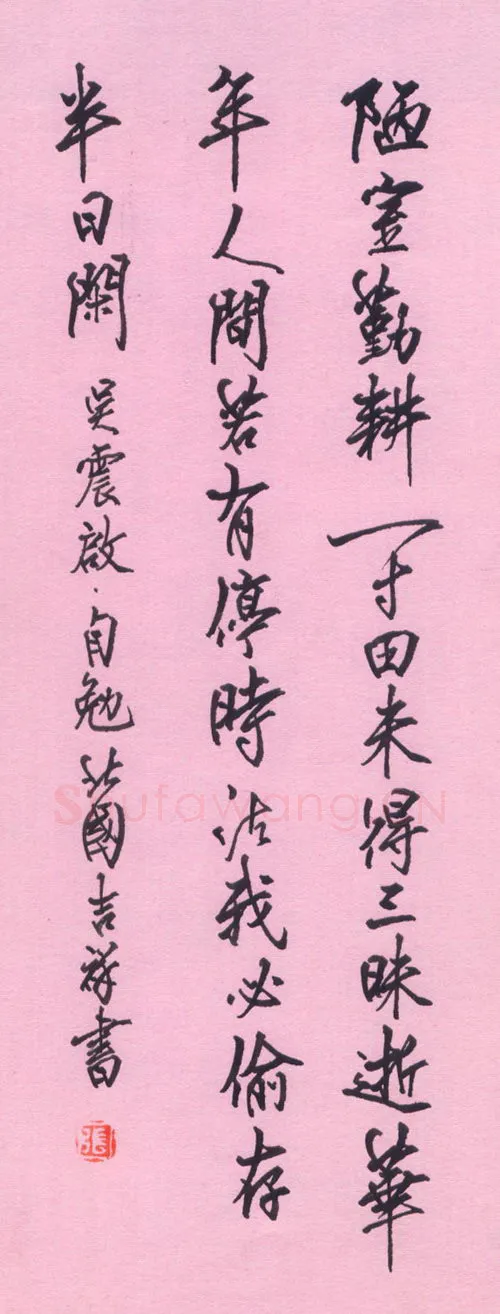 陋室勤耕一寸田未得三昧逝華
年人間若有停時法我必偷存
半日閑 吴震啟·自勉 北國吉祥書
張
Shufawang.CN